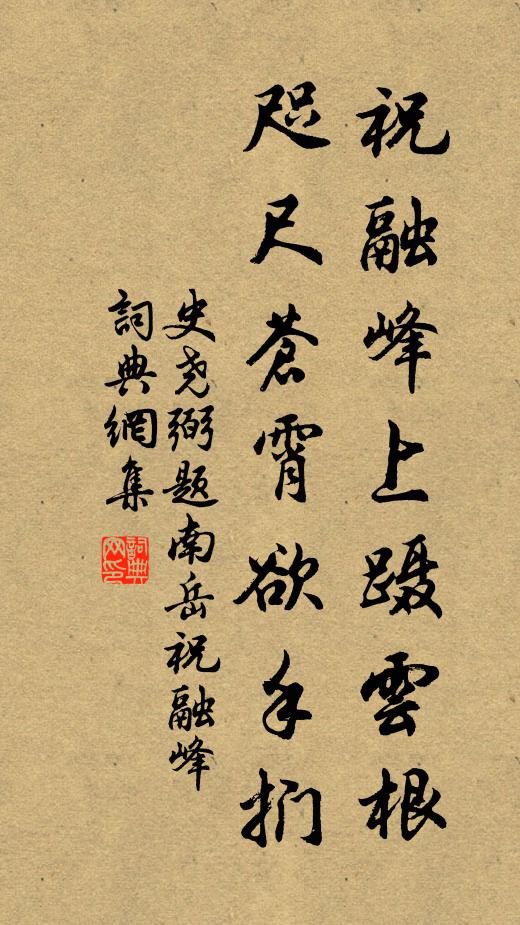 祝融峰上蹑雲根
咫尺蒼霄欲手捫
史尧弼题南岳祝融峰
詞典網集
詞典网印